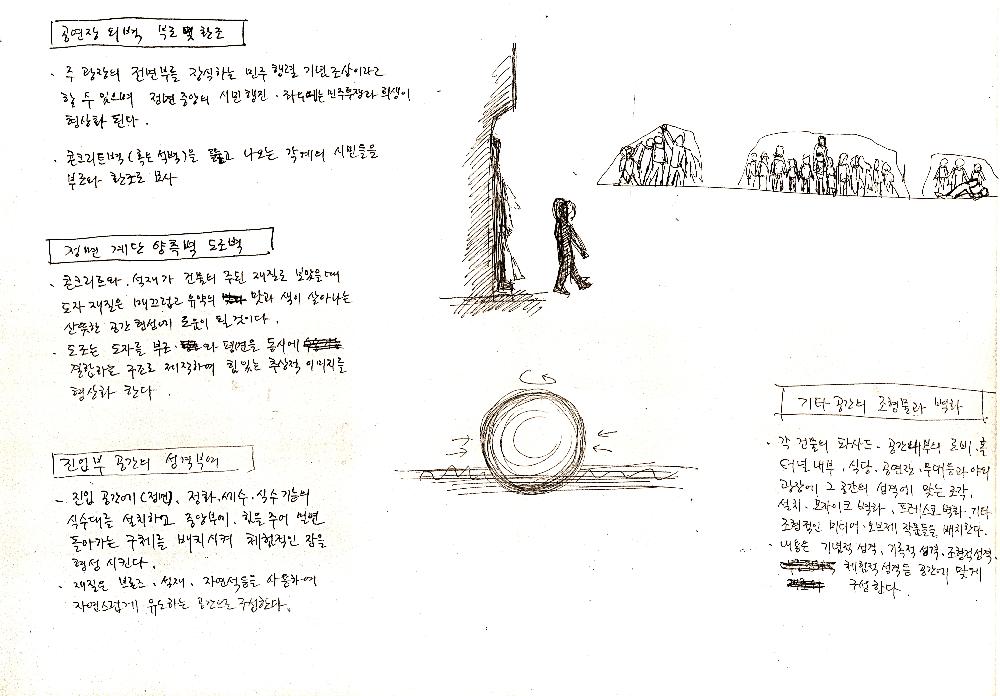 공연장 외벽 부조 및 환조
· 주 광장의 전면부를 장식하는 민주 행렬 기념 조상이라고
할 수 있으며 정면 중앙의 시민 행진 · 좌우에는 민주투쟁과 희생이
형상화 된다.
· 콘크리트벽(혹은 석벽)을 뚫고 나오는 각계의 시민들을
부조와 환조로 묘사
정면 계단 양쪽벽 도조벽
· 콘크리트와, 석재가 건물의 주된 재질로 보았을때
도자 재질은 매끄럽고 유약의 맛과 색이 살아나는
산뜻한 공간 형성에 도움이 될 것이다.
· 도조는 도자를 부조 · 와 평면을 동시에
결합하는 구조로 제작하여 힘있는 추상적 이미지를
형상화 한다.
진입부 공간의 성격부여
- 진입 공간에(정면), 정화, 세수, 식수기능의
식수대를 설치하고 중앙부에, 힘을 주어 밀면
돌아가는 구체를 배치시켜 체험적인 장을
형성 시킨다.
· 재질은 브론즈 · 석재, 자연석등을 사용하여
자연스럽게 유도하는 공간으로 구성한다.
기타 공간의 조형물과 벽화
· 각 건물의 파사드 · 공간내부의 로비 · 홀
식당, 공연장, 무대들과 야외
광장에 그 공간의 성격에 맞는 조각,
설치 · 모자이크 벽화, 프레스코벽화, 기타
조형적인 미디어 · 오브제 작품들을 배치한다.
· 내용은 기념적 성격, 기록적 성격, 조형적성격,
체험적 성격등 공간에 맞게
구성한다.